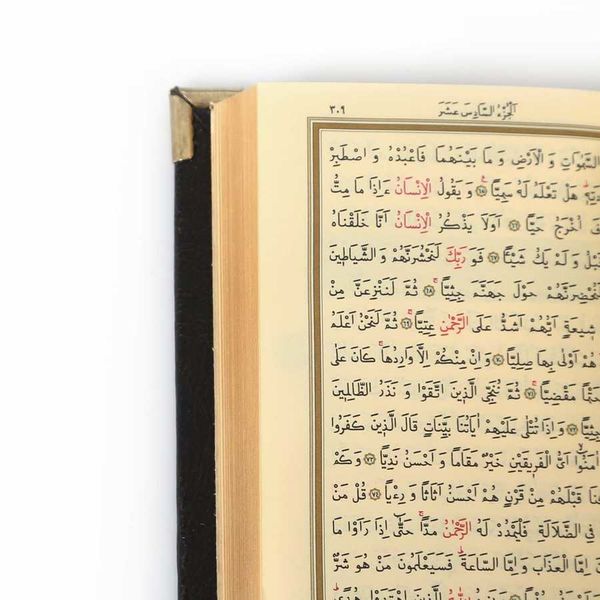 ٣٠٩ اَلْجُزْءُ السَّادِسَ عَشَرَ
السَّمٰوَاتِ وَ الْاَرْضِ وَ مَا بَيْنَهُمَا فَاعْبُدْهُ وَ اصْطَبِرْ
هَلْ تَعْلَمُ لَهُ سَمِيًّا ﴿٦٥﴾ وَ يَقُولُ الْاِنْسَانُ ءَاِذَا مَا مِتُّ
فَ اُخْرَجُ حَيًّا ﴿٦٦﴾ اَوَلَا يَذْكُرُ الْاِنْسَانُ اَنَّا خَلَقْنَاهُ
قَبْلُ وَ لَمْ يَكُ شَيْئًا ﴿٦٧﴾ فَوَ رَبِّكَ لَنَحْشُرَنَّهُمْ وَ الشَّيَاطِينَ
لَنُحْضِرَنَّهُمْ حَوْلَ جَهَنَّمَ جِثِيًّا ﴿٦٨﴾ ثُمَّ لَنَنْزِعَنَّ مِنْ
شِيعَةٍ اَيُّهُمْ اَشَدُّ عَلَى الرَّحْمٰنِ عِتِيًّا ﴿٦٩﴾ ثُمَّ لَنَحْنُ اَعْلَمُ
هُمْ اَوْلٰى بِهَا صِلِيًّا ﴿٧٠﴾ وَ اِنْ مِنْكُمْ اِلَّا وَارِدُهَا كَانَ عَلٰى
حَتْمًا مَقْضِيًّا ﴿٧١﴾ ثُمَّ نُنَجِّي الَّذِينَ اتَّقَوْا وَ نَذَرُ الظَّالِمِينَ
جِثِيًّا ﴿٧٢﴾ وَ اِذَا تُتْلٰى عَلَيْهِمْ اٰيَاتُنَا بَيِّنَاتٍ قَالَ الَّذِينَ كَفَرُوا
اٰمَنُوا اَيُّ الْفَرِيقَيْنِ خَيْرٌ مَقَامًا وَ اَحْسَنُ نَدِيًّا ﴿٧٣﴾ وَ كَمْ
قَبْلَهُمْ مِنْ قَرْنٍ هُمْ اَحْسَنُ اَثَاثًا وَ رِءْيًا ﴿٧٤﴾ قُلْ مَنْ
فِي الضَّلَالَةِ فَلْيَمْدُدْ لَهُ الرَّحْمٰنُ مَدًّا حَتّٰى اِذَا رَاَوْا مَا
اِمَّا الْعَذَابَ وَ اِمَّا السَّاعَةَ فَسَيَعْلَمُونَ مَنْ هُوَ شَرٌّ